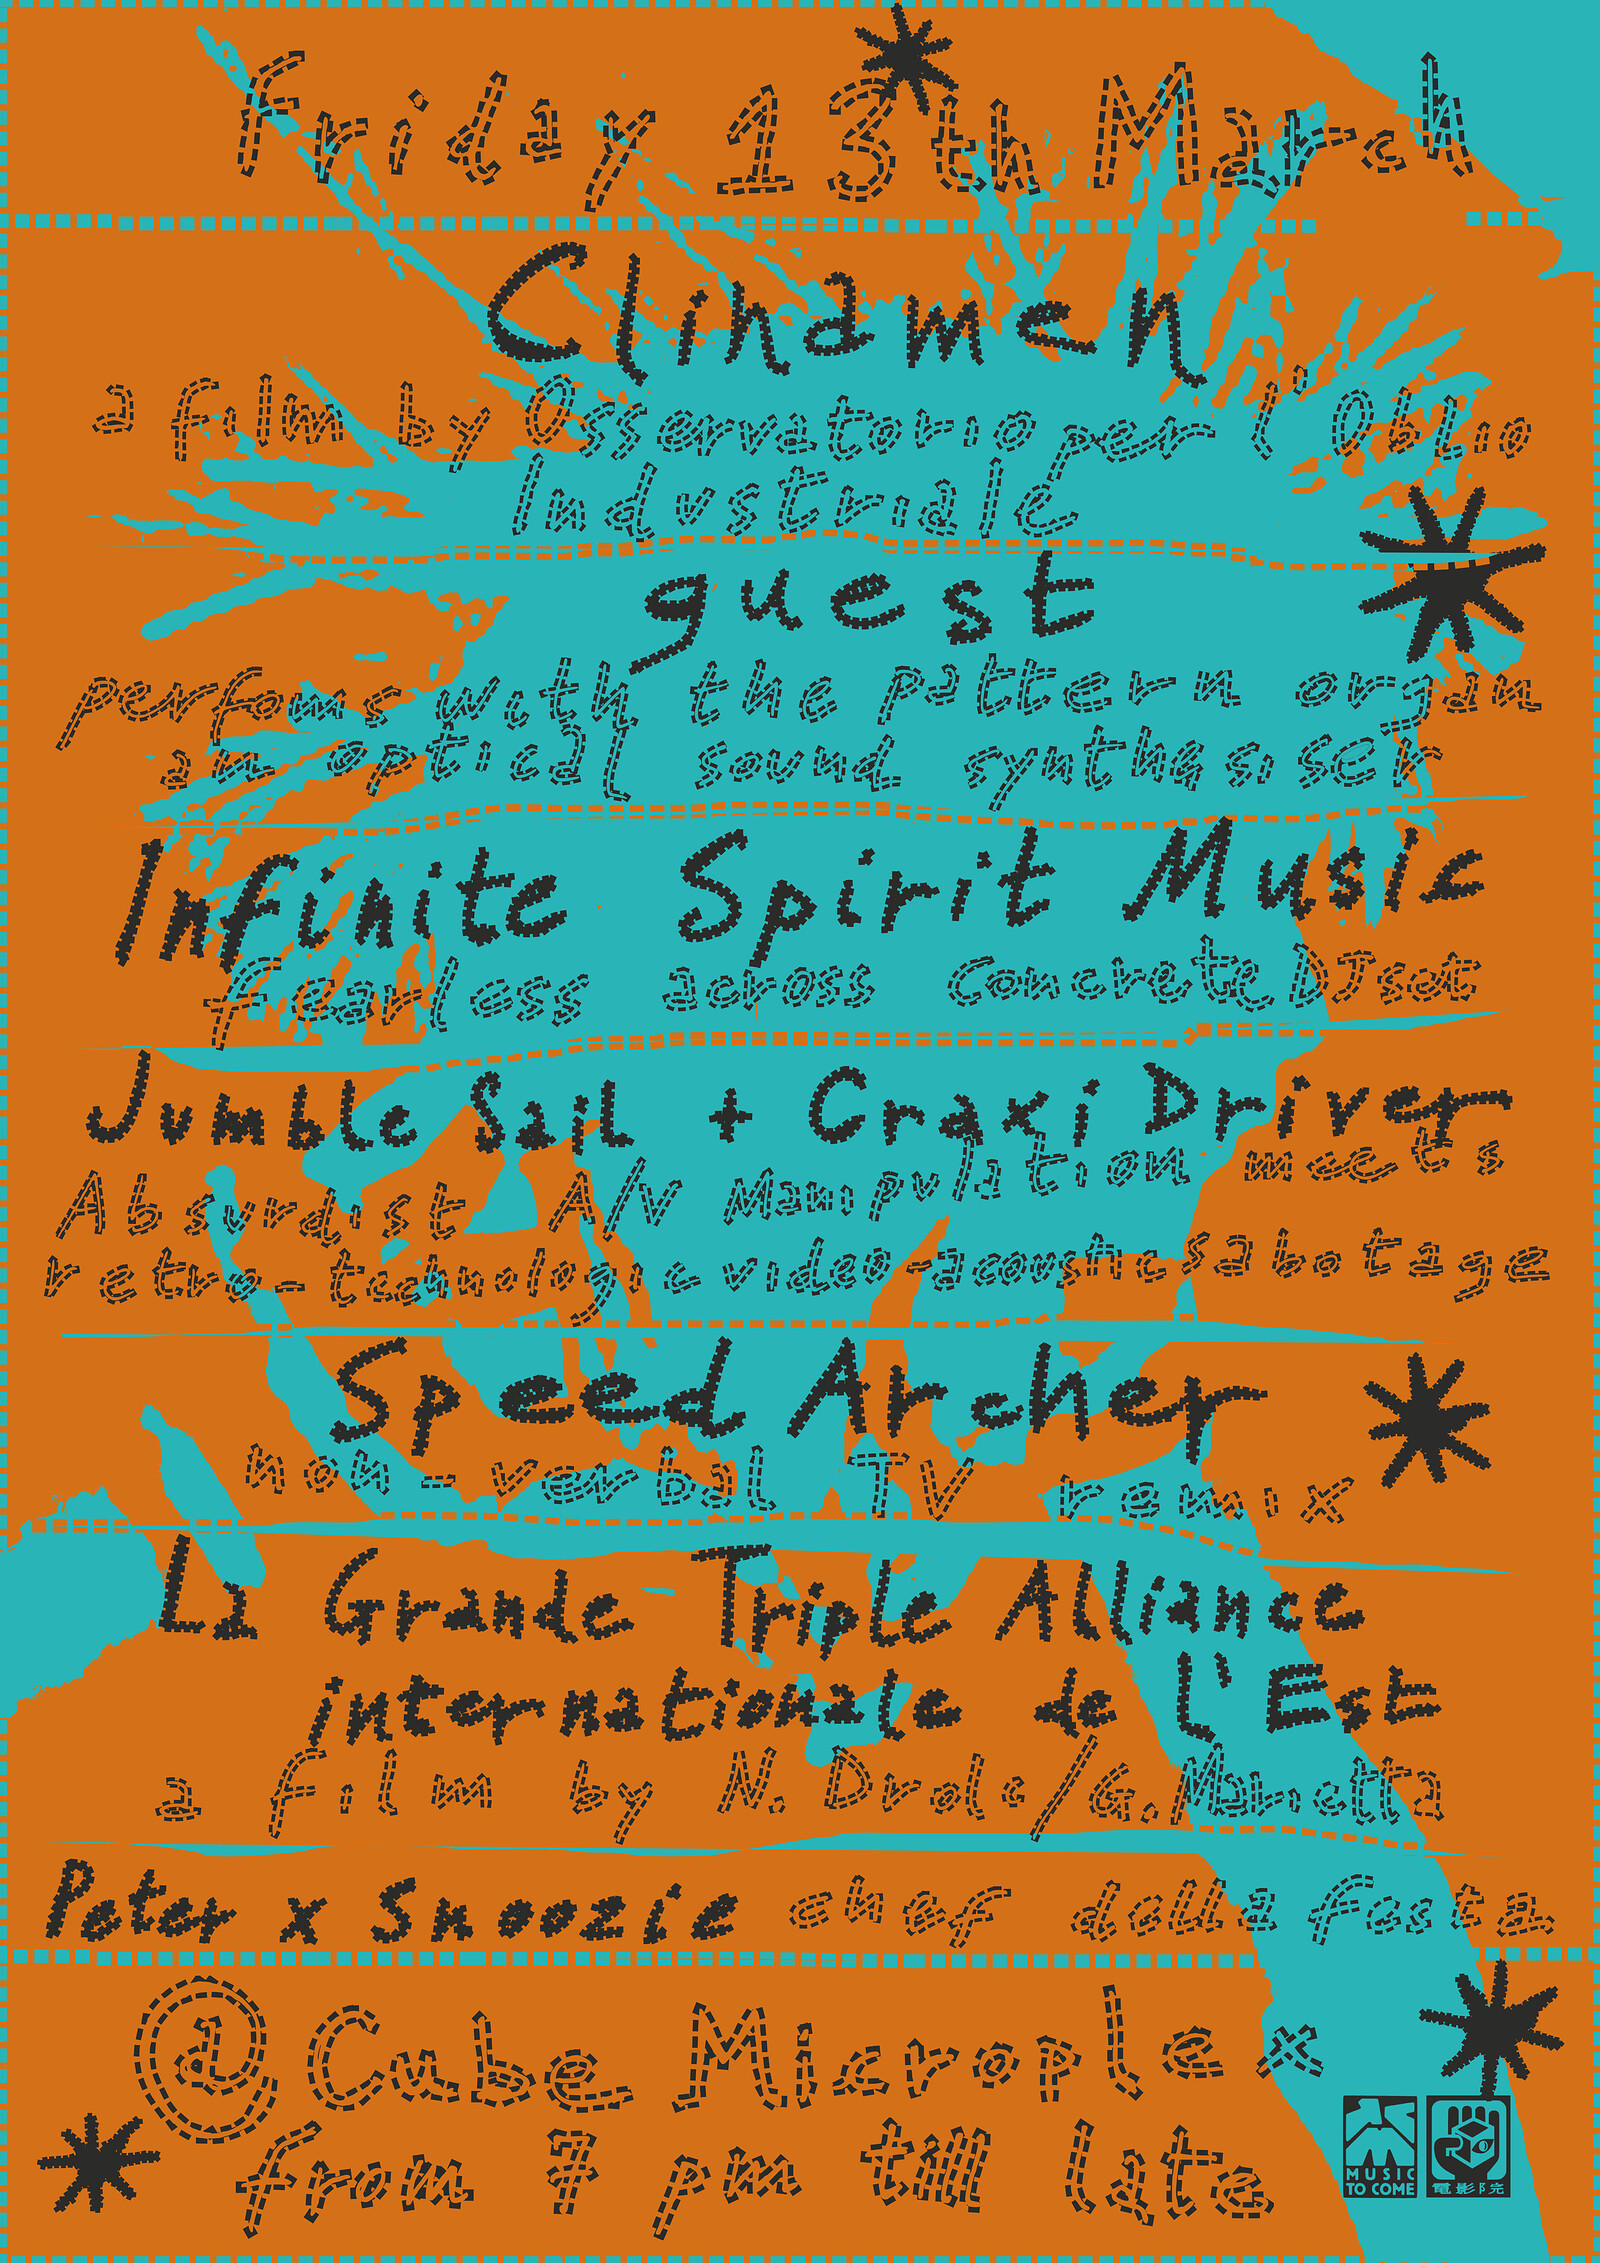 Friday 13th March
Clinamen
a film by Osservatorio per l'Oblio
Industriale
guest
perfoms with the pattern organ
an optical sound synthesiser
Infinite Spirit Music
fearless across Concrete DJ set
Jumble Sail + Craxi Driver
Absurdist A/V Manipulation meets
retro-technologic video-acoustic sabotage
Speed Archer
non-verbal TV remix
La Grande Triple Alliance
internationale de l'Est
a film by N. Drolc/G. Marietta
Peter x Snoozie chef della festa
@ Cube Microplex
from 7 pm till late
MUSIC
TO COME
電影院